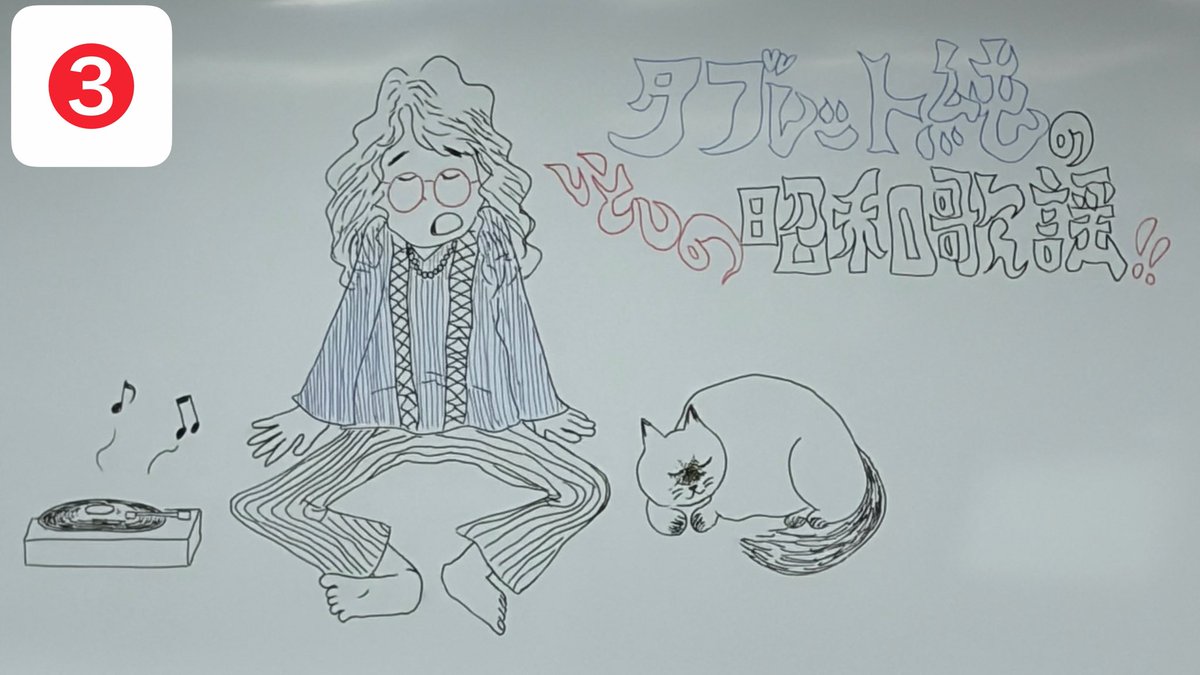 3
タブレット純の
いとしの昭和歌謡!!